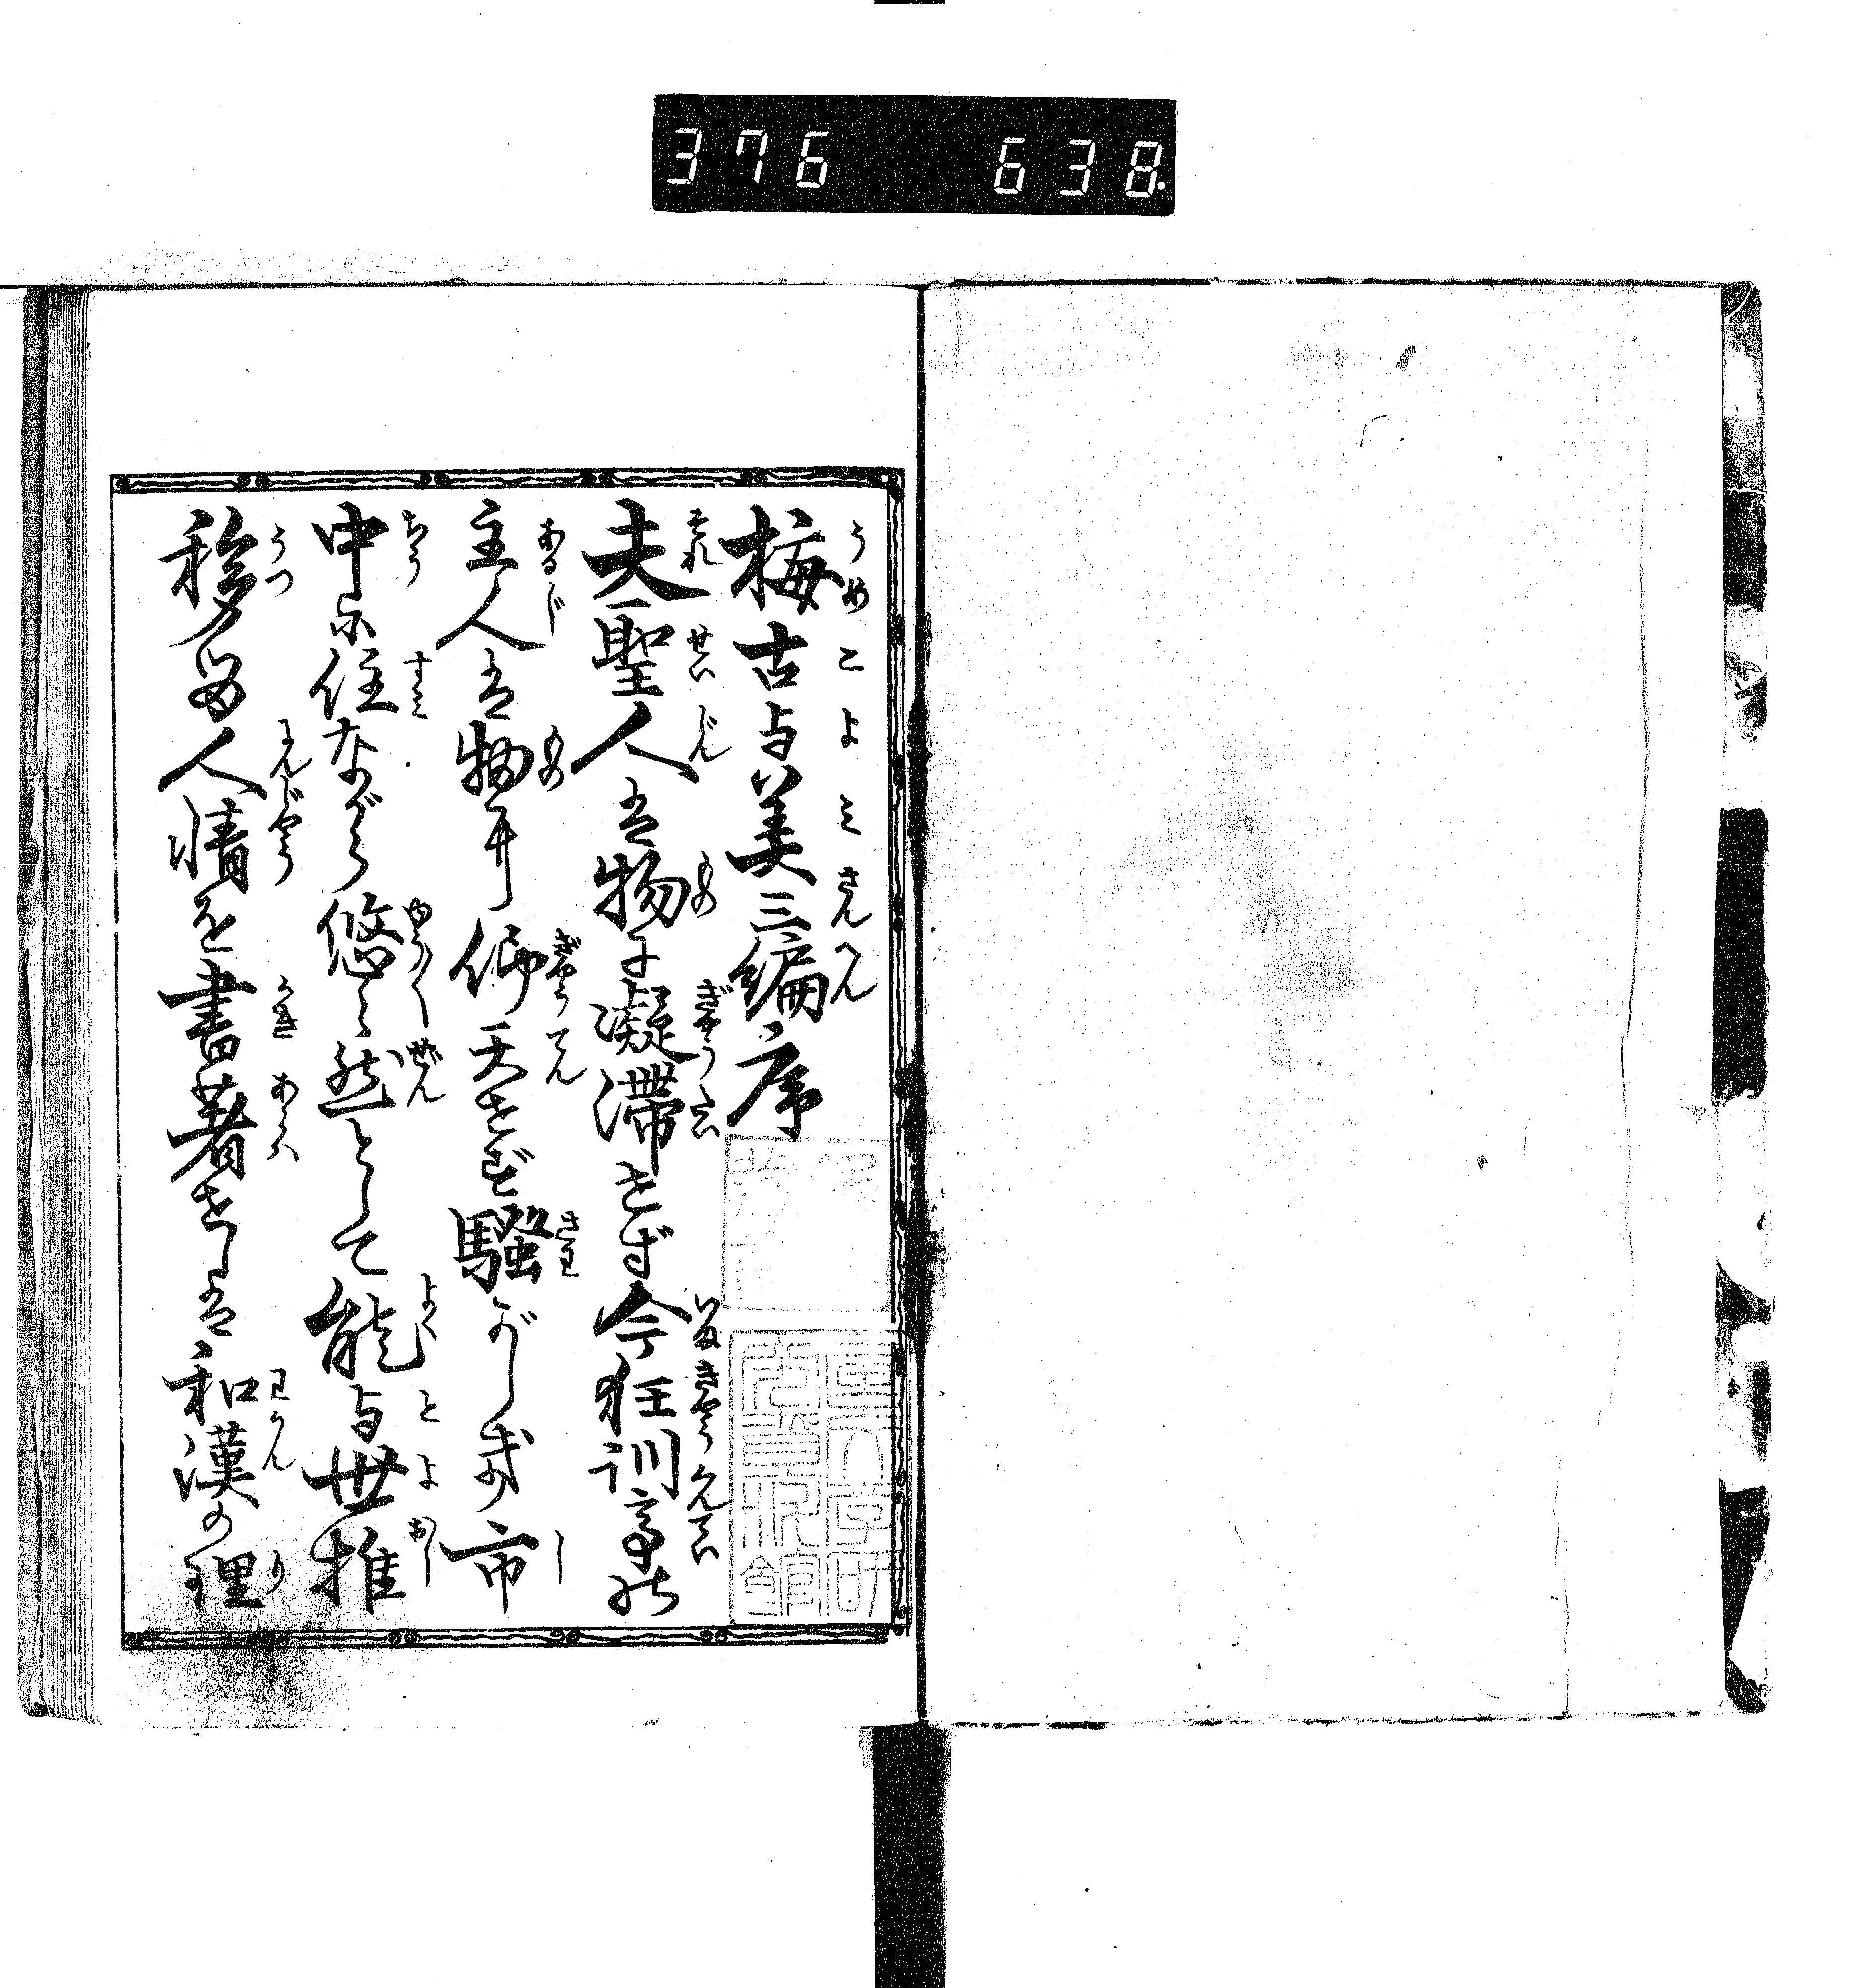 376 638
梅古与美三編序
夫聖人は物に凝滞せず今狂訓亭の
主人は物に仰天せず騒がしき市
中に住ながら悠々然として能与世推
移る人情を書著せしは和漢の理